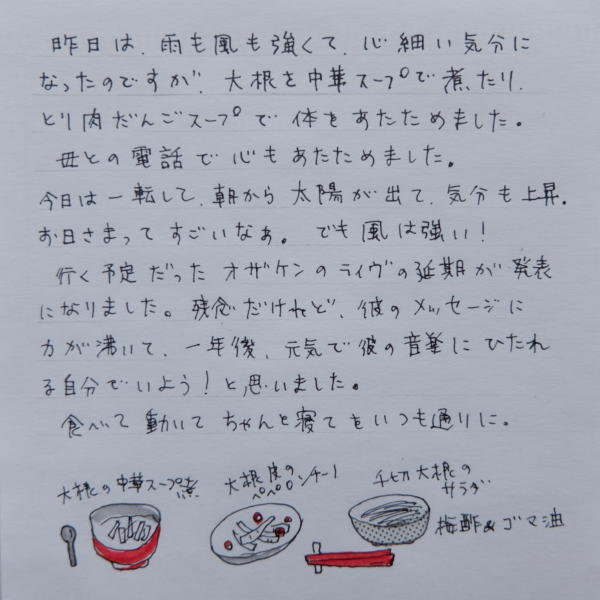 昨日は、雨も風も強くて、心細い気分に
なったのですが、大根を中華スープで煮たり、
とり肉だんごスープで体をあたためました。
母との電話で心もあたためました。
今日は一転して、朝から太陽が出て、気分も上昇。
お日さまってすごいなあ。でも風は強い!
行く予定だったオザケンのライヴの延期が発表
になりました。残念だけれど、彼のメッセージに
力が沸いて、一年後、元気で彼の音楽にひたれ
る自分でいよう!と思いました。
食べて動いてちゃんと寝てをいつも通りに。
大根の中華スープ煮
大根皮の
ペペロンチーノ
千切大根の
サラダ
梅酢&ゴマ油